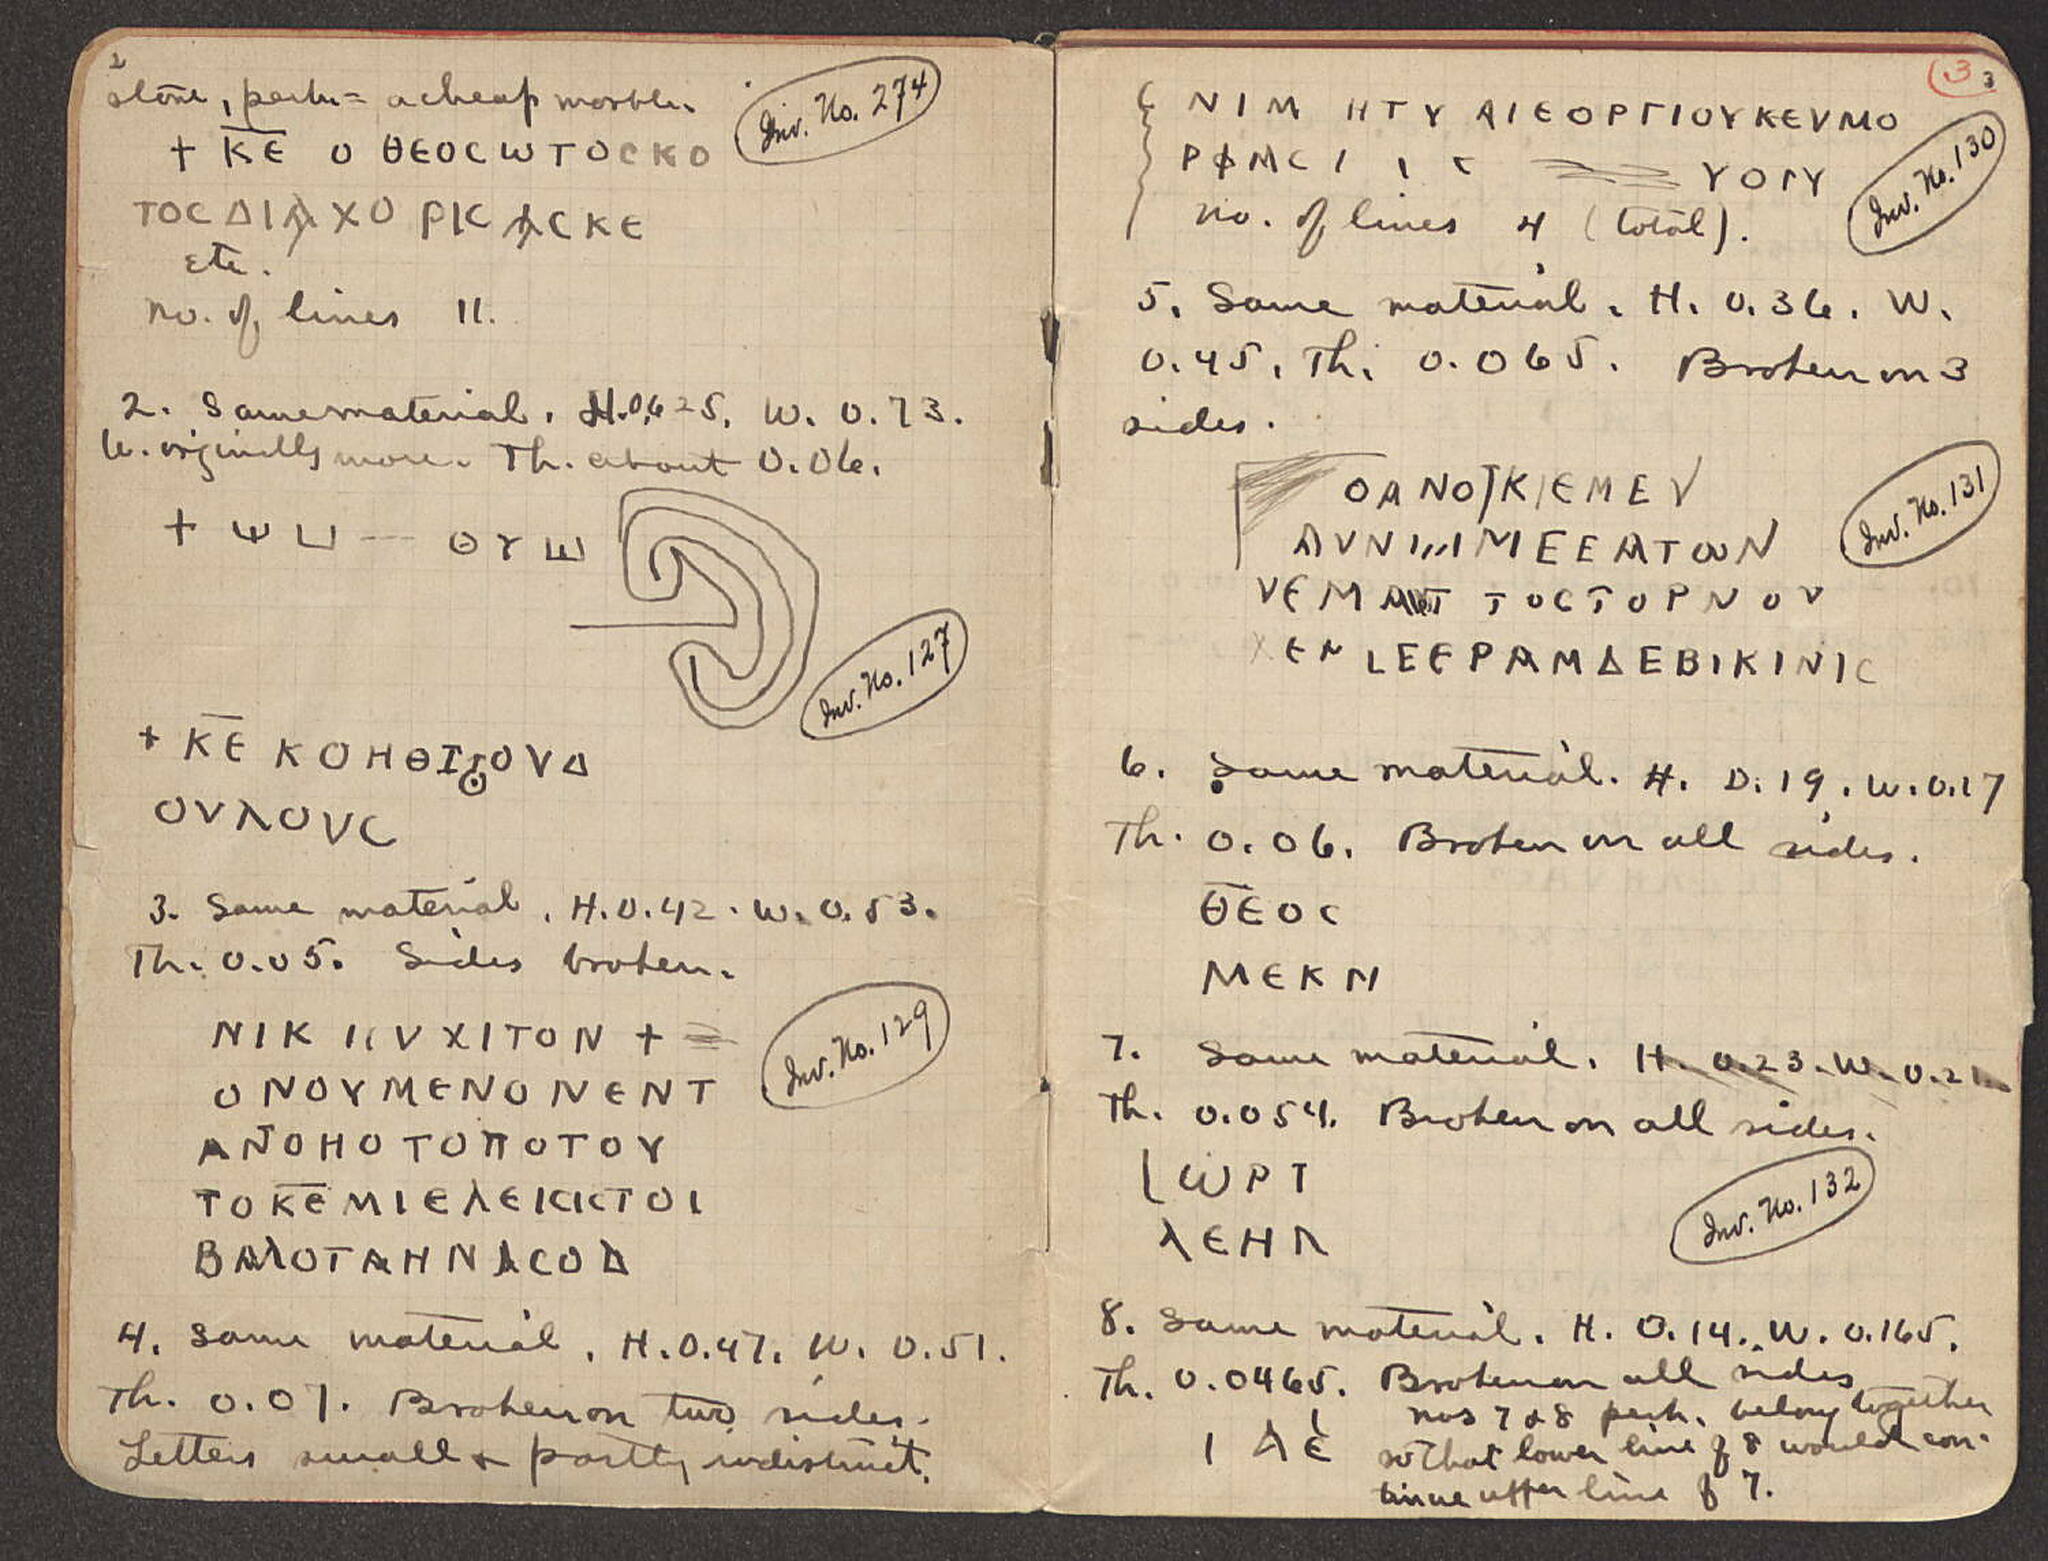 2
stone, perh = a cheap marble.
Inv. No. 274
+ Κ̅Ε̅ Ο ΘΕΟCωΤΟCΚΟ
ΤΟCΔΙΑΧΟ ΡΙC ΑCΚΕ
etc.
no. of lines 11.
2. Same material. H. 0.625. W. 0.73.
W. originally more. Th. about 0.06.
+ Ψ
ΘΥ
Inv. No. 127
+ Κ̅Ε̅ ΚΟΗΘΙ ΟVΔ
ΟVΛΟVC
3. Same material. H. 0.42. W. 0.53.
Th. 0.05. Sides broken.
ΝΙΚ VΧΙΤΟΝ +
Inv. No. 129
ΟΝΟΥΜΕΝΟΝΕΝΤ
ΑΝΟΗΟΤΟΠΟΤΟΥ
ΤΟΚ̅Ε̅ΜΙΕΛΕΙCΙCΤΟΙ
ΒΑΛΟΤΑΗΝΑCΟΔ
4. Same material. H. 0.47. W. 0.51.
Th. 0.07. Broken on two sides.
Letters small & partly indistinct.
3 3
ΝΙΜ ΗΤΥ ΑΙΕΟΡΓΙΟΥΚΕVΜΟ
ΡΦΜC Ι Ι C ΥΟΓΥ
Inv. No. 130
no. of lines 4 (total).
5. Same material. H. 0.36. W.
0.45. Th. 0.065. Broken on 3
sides.
ΟΑΝΟ ΚΙΕΜΕV
Inv. No. 131
ΑVΝ ΜΕΕΑΤωΝ
VΕΜΑ ΤΟCΤΟΡΝΟV
ΧΕΝ LΕΕΡΑΜΔΕΒΙΚΙΝΙC
6. Same material. H. 0.19. W. 0.17
Th. 0.06. Broken on all sides.
Θ̅Ε̅ΟC
ΜΕΚΝ
7. Same material. H. 0.23. W. 0.21.
Th. 0.054. Broken on all sides.
ωΡΤ
Inv. No. 132
ΛΕΗΛ
8. Same material. H. 0.14. W. 0.165.
Th. 0.0465. Broken on all sides
nos 7 & 8 perh. belong together
Ι ΛΕ so that lower line of 8 would con-
tinue upper line of 7.